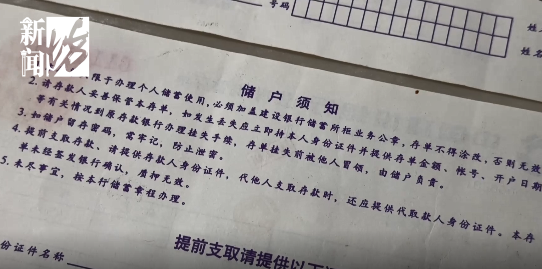 新闻坊
号码
姓
储户须知
限于办理个人储蓄使用,必须加盖建设银行储蓄所柜业务公章,存单不得涂改,否则无效
2. 请存款人妥善保管本存单,如发生丢失应立即持本人身份证件并提供存单金额、帐号、开户日期
等有关情况到原存款银行办理挂失手续,存单挂失前被他人冒领,由储户负责。
3. 如储户留存密码,需牢记,防止泄密。
4. 提前支取存款,请提供存款人身份证件,代他人支取存款时,还应提供代取款人身份证件。本存
单未经签发银行确认,质押无效。
5. 未尽事宜,按本行储蓄章程办理。
提前支取请提供以下
份证件名称